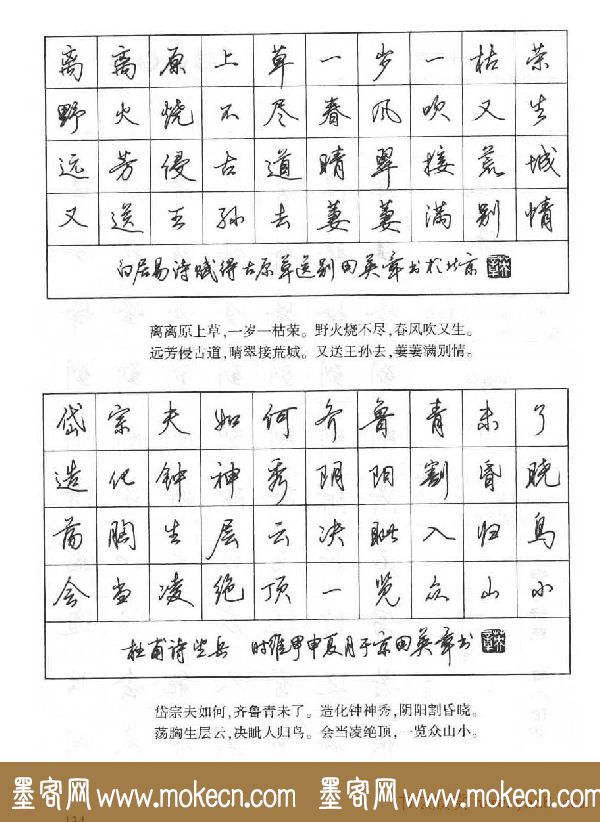 离离原上草一岁一枯荣
野火烧不尽春风吹又生
远芳侵古道晴翠接荒城
又送王孙去萋萋满别情
白居易诗赋得古原草送别田英章书于北京
离离原上草,一岁一枯荣。野火烧不尽,春风吹又生。
远芳侵古道,晴翠接荒城。又送王孙去,萋萋满别情。
岱宗夫如何齐鲁青未了
造化钟神秀阴阳割昏晓
荡胸生层云决眦入归鸟
会当凌绝顶一览众山小
杜甫诗望岳 时维甲申夏月于京田英章书
岱宗夫如何,齐鲁青未了。造化钟神秀,阴阳割昏晓。
荡胸生层云,决眦人归鸟。会当凌绝顶,一览众山小。
墨客网www.mokecn.com墨客网www.mokecn.com
134